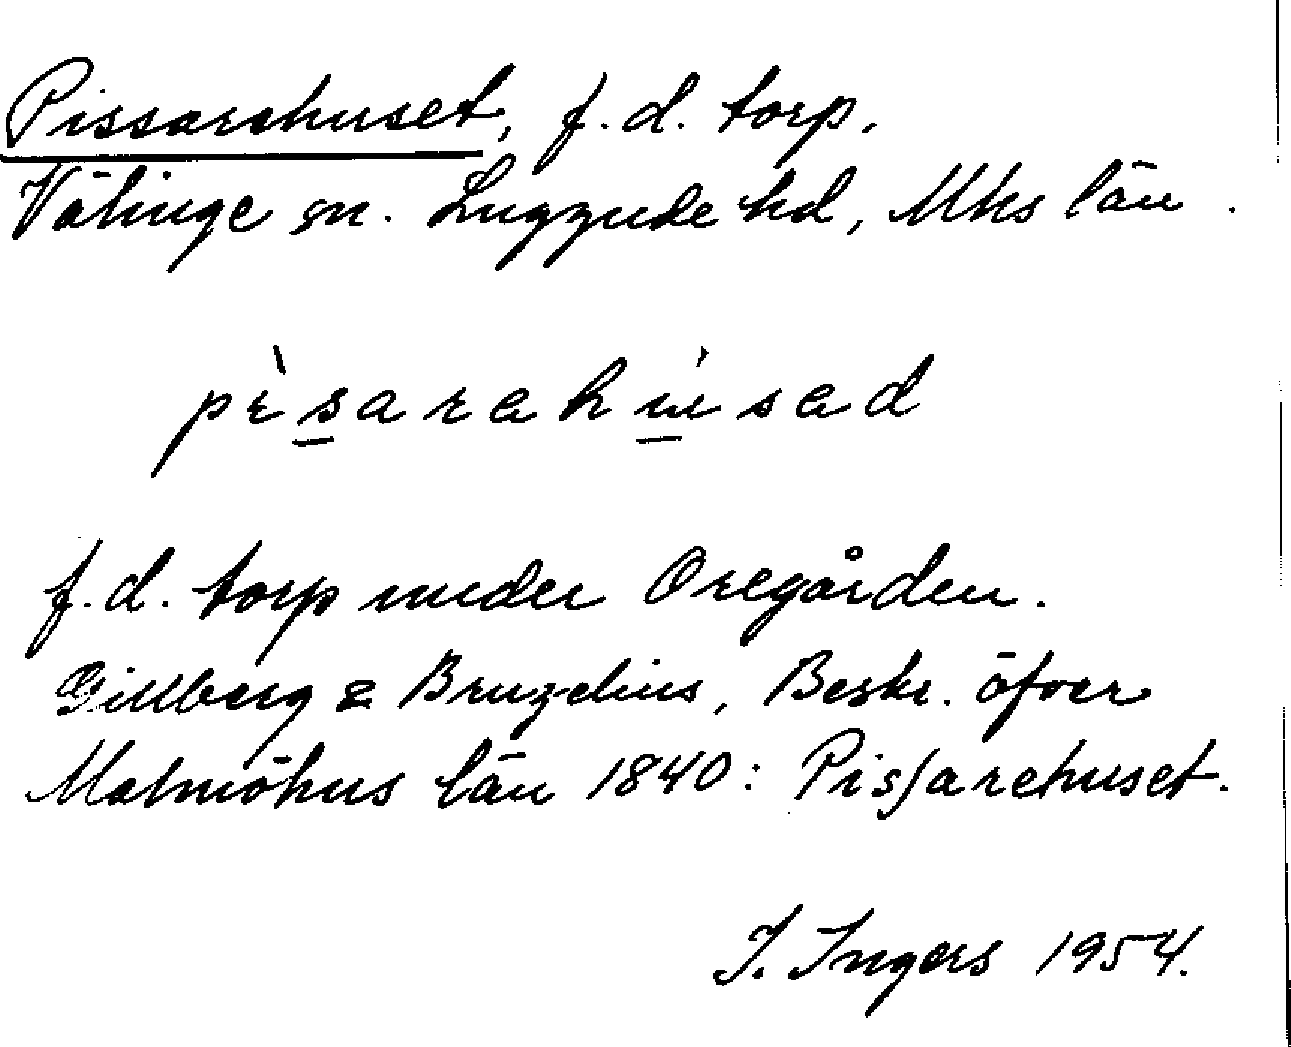 Pissarehuset, f.d. torp.
Välinge sn. Luggude hd, Mhs län.
pìsarahu̍sad
f.d. torp under Oregården.
Gillberg & Bruzelius, Beskr. öfver
Malmöhus län 1840: Pisſarehuset.
I. Ingers 1954.